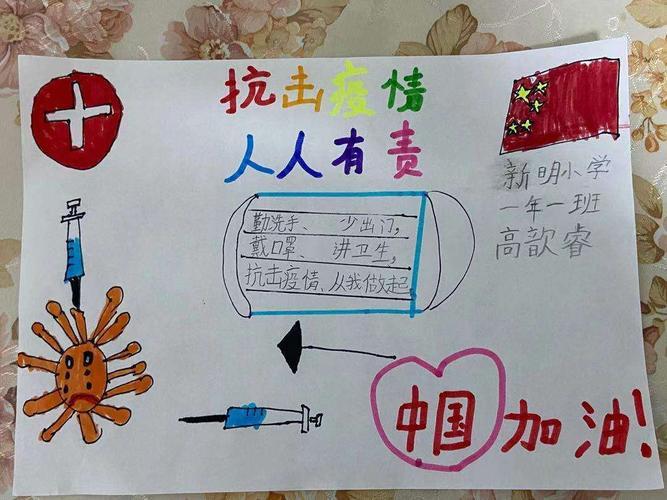 抗击疫情
人人有责
新明小学
一年一班
高歆睿
勤洗手、少出门,
戴口罩、讲卫生,
抗击疫情、从我做起
中国加油!